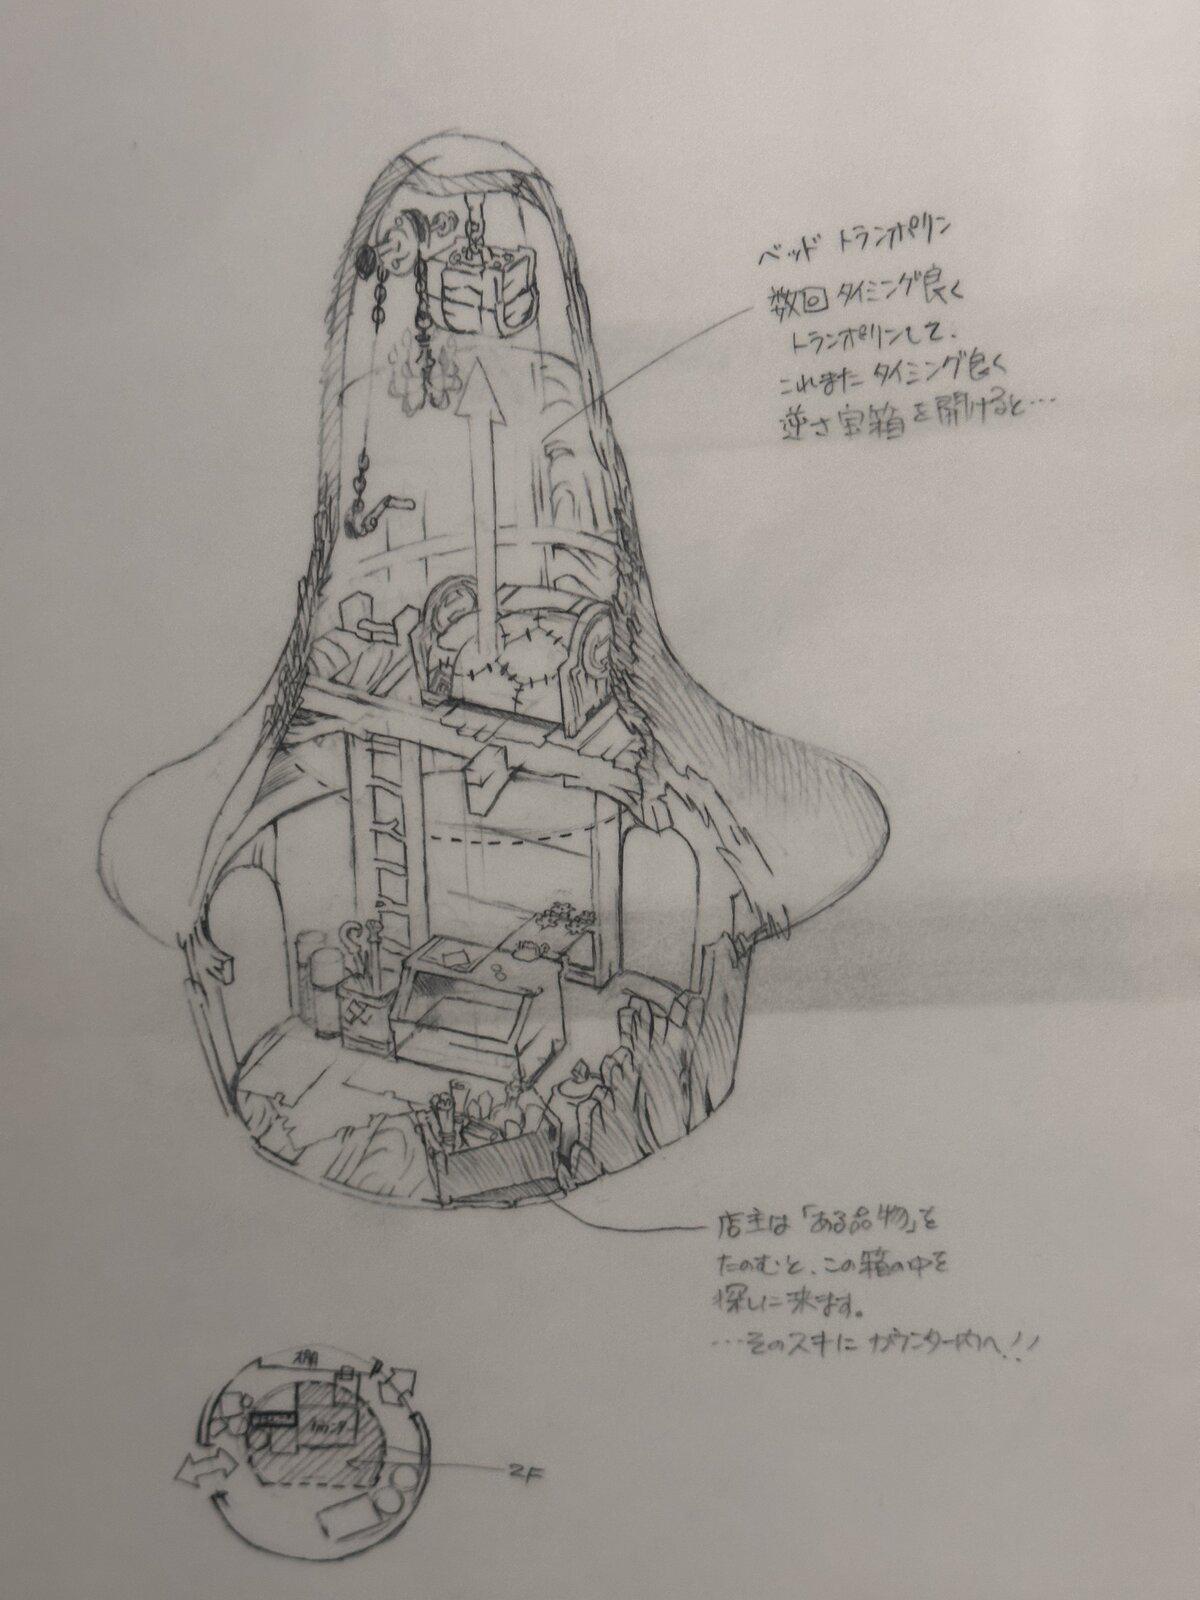 ベッド トランポリン
数回 タイミング良く
トランポリンして、
これまた タイミング良く
逆さ宝箱を開けると…
店主は「ある品物」を
たのむと、この箱の中を
探しに来ます。
…そのスキに カウンター内へ!!
棚
カウンター
2F